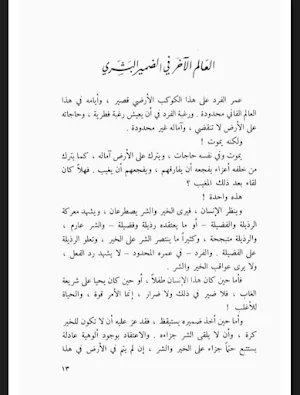 العالم الآخر في الضمير البشري
عمر الفرد على هذا الكوكب الأرضي قصير ، وأيامه في هذا
العالم الفاني محدودة . ورغبة الفرد في أن يعيش رغبة فطرية ، وحاجاته
على الأرض لا تنقضي ، وآماله غير محدودة .
ولكنه يموت !
يموت وفي نفسه حاجات ، ويترك على الأرض آماله ، كما يترك
من خلفه أعزاء يفجعه أن يفارقهم ، ويفجعهم أن يغيب . فهلا كان
لقاء بعد ذلك المغيب ؟
هذه واحدة !
وينظر الإنسان ، فيرى الخير والشر يصطرعان ، ويشهد معركة
الرذيلة والفضيلة – أو ما يعتقده رذيلة وفضيلة – والشر عارم ،
والرذيلة متبجحة ، وكثيراً ما ينتصر الشر على الخير ، وتعلو الرذيلة
على الفضيلة . والفرد – في عمره المحدود – لا يشهد رد الفعل ،
ولا يرى عواقب الخير والشر .
فأما حين كان هذا الإنسان طفلاً ، أو حين كان يحيا على شريعة
الغاب ، فلا ضير في ذلك ولا ضرار ، إنما الأمر قوة ، والحياة
للأغلب !
وأما حين أخذ ضميره يستيقظ ، فقد عز عليه أن لا تكون للخير
كرة ، وأن لا يلقى الشر جزاءه . والاعتقاد بوجود ألوهية عادلة
يستتبع حتماً جزاء على الخير والشر ، إن لم يتم في الأرض في هذا
١٣